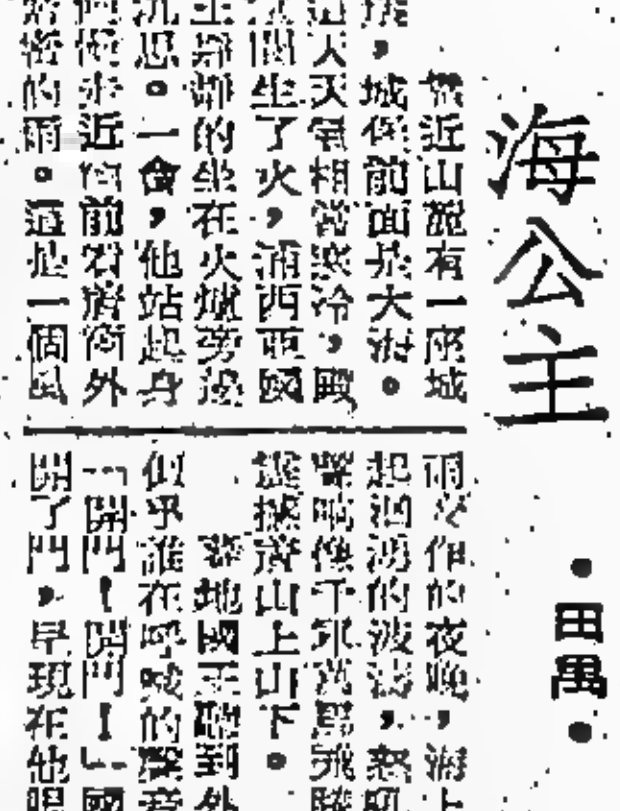 海公主
●田禺●
近山麓有一座城
堡，城堡前面是大海。
這天天氣相當寒冷，殿
間生了火，浦西亞國
王靜靜的坐在火爐旁邊
沉思。一會，他站起身
步近窗前看着窗外
密的雨。這是一個風
雨交作的夜晚，海上
起洶湧的波濤，怒吼
聲響像千軍萬馬飛騰
着山上山下。
驀地國王聽到外
似乎誰在呼喊的聲音
「開門！開門！」國
開了門，呈現在他眼